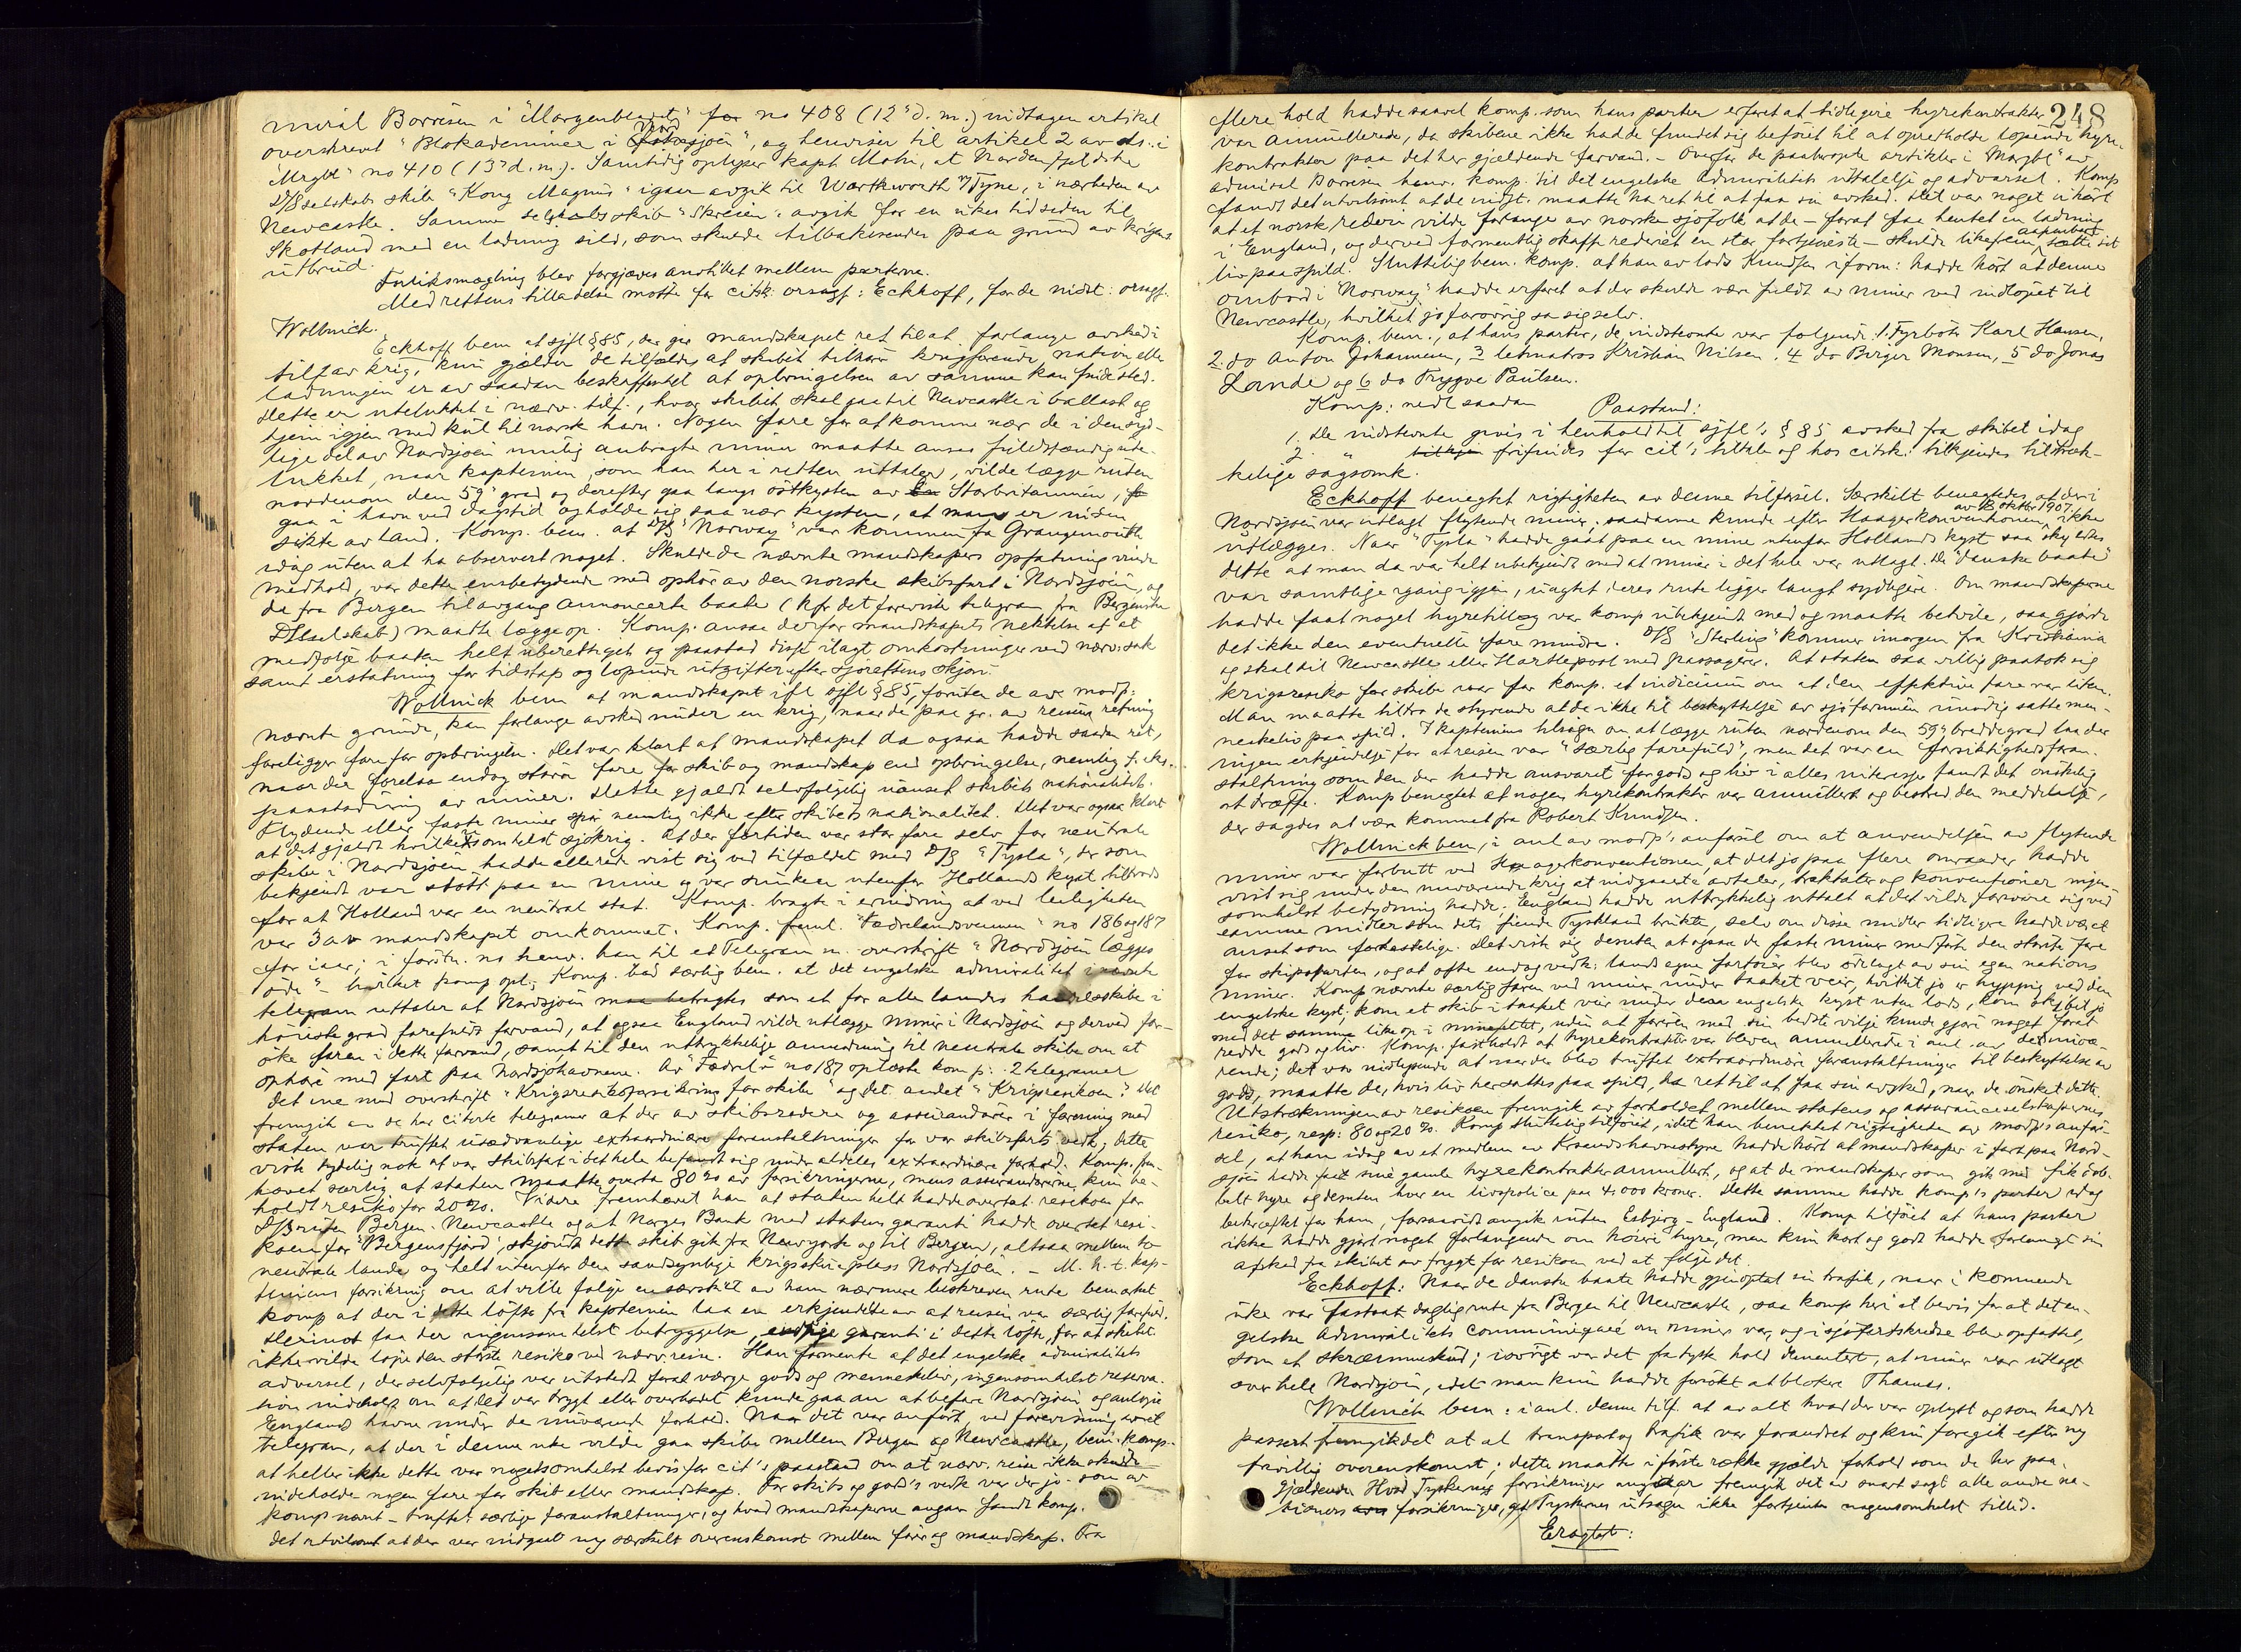 miral Börresen i "Morgenbladet" for no 408 (12' d. m.) indtagen artikel
overskrevet "Blokademiner i Nordsjöen", og henviser til artikel 2 av ds. i
Mrgbl" no 410 (13' d. m.). Samtidig oplyser kapt. Mohn, at Nordenfjeldske
D/Sselskabs skib "Kong Magnus" igaar avgik til Warkworth n/Tyne, i nærheden av
Newcastle. Samme selskabs skib "Skreien" avgik for en ukes tid siden til
Skotland med en ladning sild, som skulde tilbakesendes paa grund av krigens
utbrud.
Forliksmægling blev forgjæves anstillet mellem parterne.
Med rettens tilladelse mötte for citsk: orsagf: Eckhoff, for de indst: orsagf.
Wollnick.
Eckhoff bem. at sjfl § 85, der gir mandskapet ret til at forlange avsked i
tilf av krig, kun gjælder de tilfælde, at skibet tilhörer krigförende nation, eller
ladningen er av saadan beskaffenhet at opbringelsen av samme kan finde sted.
Dette er utelukket i nærv. tilf., hvor skibet skal gaa til Newcastle i ballast og
hjem igjen med kul til norsk havn. Nogen fare for at komme nær de i den syd-
lige del av Nordsjöen mulig anbragte miner maatte anses fuldstændig ute-
lukket, naar kapteinen, som han her i retten uttaler, vilde lægge ruten
nordenom den 59' grad og derefter gaa langs östkysten av Storbritannien,
gaa i havn ved dagstid og holde sig saa nær kysten, at man er inden
sikte av land. Komp. bem. at D/S "Norway" var kommen fra Grangemouth
idag uten at ha observert noget. Skulde de nævnte mandskapers opfatning vinde
medhold, var dette ensbetydende med ophör av den norske skibsfart i Nordsjöen, og
de fra Bergen til avgang annoncerte baate (kfr det foreviste telegram fra Bergenske
D/Sselskab) maatte lægge op. Komp. ansaa derfor mandskapets nektelse af at
medfölge baaten helt uberettiget og paastod disse ilagt omkostninger ved nærv: sak
samt erstatning for tidstap og löpende utgifter efter sjörettens skjön.
Wollnick bem at mandskapet ifl sjfl § 85, foruten de av modp:
nævnte grunde, kan forlange avsked under en krig, naar de paa gr. av reisens retning
foreligger fare for opbringelse. Det var klart at mandskapet da ogsaa hadde saadan ret,
naar der forelaa endog större fare for skib og mandskap end opbringelse, nemlig f. eks.
paastödning av miner. Dette gjaldt selvfölgelig uanset skibets nationalitet.
Flydende eller faste miner spör nemlig ikke efter skibets nationalitet. Det var ogsaa klart
at det gjaldt hvilkensomhelst sjökrig. At der for tiden var stor fare selv for neutrale
skibe i Nordsjöen hadde allerede vist sig ved tilfældet med D/S "Tysla", der som
bekjendt var stött paa en mine og var sunken utenfor Hollands kyst tiltrods
for at Holland var en neutral stat. Komp. bragte i erindring at ved leiligheten
var 3 av mandskapet omkommet. Komp. freml. "Fædrelandsvennen" no 186 og 187
for iaar; i först n. no henv. han til et Telegram m. overskrift "Nordsjöen lægges
öde" - hvilket komp opl. Komp. bad særlig bem. at det engelske admiralitet i nævnte
telegram uttaler at Nordsjöen maa betragtes som et for alle landes handelsskibe i
höieste grad farefuldt farvand, at ogsaa England vilde utlægge miner i Nordsjöen og derved for-
öke faren i dette farvand, samt til den uttrykkelige anmodning til neutrale skibe om at
ophöre med fart paa Nordsjöhavnene. Av "Fædrel" no 187 oplæste komp: 2 telegramer
det ene med overskrift "Krigsrisikoforsikring for skibe" og det andet "Krigsrisikoen". Det
fremgik av de her citerte telegramer at der av skibsredere og assurandører i forening med
staten var truffet usædvanlige extraordinære foranstaltninger for vor skibsfarts vedk; dette
viste tydelig nok at vor skibsfart i det hele befandt sig under aldeles extraordinære forhold. Komp. frem-
hævet særlig at staten maatte overta 80% av forsikringerne, mens assurandørerne kun be-
holdt resiko for 20%. Videre fremhævet han at staten helt hadde overtat resikoen for
D/Sruten Bergen-Newcastle og at Norges Bank med statens garanti hadde overtat resi-
koen for "Bergensfjord", skjöndt dette skib gik fra Newyork og til Bergen, altsaa mellem to
neutrale lande og helt utenfor den sandsynlige krigsskueplass Nordsjöen. - M. h. t. kap-
teinens forsikring om at ville fölge en særskilt av ham nærmere beskreven rute bemerket
komp at der i dette löfte fra kapteinen laa en erkjendelse av at reisen var særlig farefuld.
Derimot laa der ingensomhelst betryggelse, endsige garanti i dette löfte, for at skibet
ikke vilde löpe den störste resiko ved nærv: reise. Han formente at det engelske admiralitets
advarsel, der selvfölgelig var utstedt foral værge gods og menneskeliv, ingensomhelst reserva-
sion indeholdt om at det var trygt eller overhodet kunde gaa an at befare Nordsjöen og anlöpe
Englands havne under de nuværende forhold. Naar det var anfört, ved forevisning av et
telegram, at der i denne uke vilde gaa skibe mellem Bergen og Newcastle, bem. komp.
at heller ikke dette var nogetsomhelst bevis for cit's paastand om at nærv. reise ikke skulde
indeholde nogen fare for skib eller mandskap. For skibs og gods's vedk var der jo - som av
komp nævnt - truffet særlige foranstaltninger, og hvad mandskaperne angaar fandt komp.
det utvilsomt at der var indgaat ny særskilt overenskomst mellem förer og mandskap. Fra
248
flere hold hadde saavel komp. som hans partier erfaret at tidligere hyrekontrakter
var annullerede, da skibene ikke hadde fundet sig beföiet til at opretholde löpende hyre-
kontrakter paa det her gjældende farvand. - Overfor de paaberopte artikler i Morgbl" av
admiral Börresen henv. komp. til det engelske admiralitets uttalelse og advarsel. Komp
fandt det utvilsomt at de indst. maatte ha ret til at faa sin avsked. Det var noget uhört
at et norsk rederi vilde forlange av norske sjöfolk at de - foral faa hentet en ladning
i England, og derved formentlig skaffe rederiet en stor fortjeneste - skulde likefrem aapenbart sætte sit
liv paa spild. Sluttelig bem. komp. at han av lods Knudsen iform: hadde hört at denne
ombord i "Norway" hadde erfaret at der skulde være fuldt av miner ved indlöpet til
Newcastle, hvilket jo forövrig sa sig selv.
Komp. bem., at hans partier, de indstevnte var fölgende: 1. Fyrböter Karl Hansen,
2. do Anton Johannesen, 3 letmatros Kristian Nilsen, 4 do Birger Monsen, 5 do Jonas
Lande og 6 do Trygve Paulsen.
Komp: nedl saadan Paastand:
1. De indstevnte givis i henhold til sjfl's § 85 avsked fra skibet idag
2. " frifindes for cit's tiltale og hos citsk: tilkjendes tilstræk-
kelige sagsomk.
Eckhoff benegtet rigtigheten av denne tilförsel. Særskilt benegtedes at der i
Nordsjöen var utlagt flytende miner; saadanne kunde efter Haagerkonventionen av 18 oktbr 1907 ikke
utlægges. Naar "Tysla" hadde gaat paa en mine utenfor Hollands kyst saa sky ldtes
dette at man da var helt ubekjendt med at miner i det hele var utlagt. De "danske baate"
var samtlige igang igjen, uagtet deres rute ligger langt sydligere. Om mandskaperne
hadde faat noget hyretillæg var komp ubekjendt med og maatte betvile, saa gjorde
det ikke den eventuelle fare mindre. D/S "Sterling" kommer imorgen fra Kristiania
og skal til Newcastle eller Hartlepool med passagerer. At staten saa villig paatok sig
krigsresiko for skibe var for komp. et indicium om at den effektive fare var liten.
Man maatte tiltro de styrende at de ikke til beskyttelse av sjöfarrmen unödig satte men-
neskeliv paa spild. I kapteinens tilsagn om at lægge ruten nordenom den 59' breddegrad laa der
ingen erkjendelse for at reisen var "særlig farefuld", men det var en forsiktighedsforan-
staltning som den der hadde ansvaret for gods og liv i alles interesse fandt det önskelig
at træffe. Komp benegtet at nogen hyrekontrakter var annullert og bestred den meddelelse,
der sagdes at være kommet fra Robert Knudsen.
Wollnick bem, i anl av modp's anförsel om at anvendelsen av flytende
miner var forbutt ved Haagerkonventionen, at det jo paa flere omraader hadde
vist sig under den nuværende krig at indgaaete avtaler, traktater og konventioner ingen-
somhelst betydning hadde. England hadde uttrykkelig uttalt at det vilde forsvare sig ved
samme midler som dets fiende Tyskland brukte, selv om disse midler tidligere hadde været
anset som forkastelige. Det viste sig desuten at ogsaa de faste miner medförte den störste fare
for skipsfarten, og at ofte endog vedk: lands egne fartöier blev ödelagt av sin egen nations
miner. Komp nævnte særlig faren ved miner under taaket veir, hvilket jo er hyppig ved den
engelske kyst; kom et skib i taaket veir under den engelske kyst uten lods, kom skibet jo
med det samme like op i minefeltet, uden at föreren med sin bedste vilje kunde gjöre noget foral
redde gods og liv. Komp. fastholdt at hyrekontrakter var bleven annullerede i anl. av det invæ-
rende; det var indlysende at naar der blev truffet extraordinære foranstaltninger til beskyttelse av
gods, maatte de, hvis liv her sattes paa spild, ha ret til at faa sin avsked, naar de önsket dette.
Utstrækningen av resikoen fremgik av forholdet mellem statens og assuranceselskapernes
resiko, resp: 80 og 20 %. Komp sluttelig tilföiet, idet han benektet rigtigheten av modp's anför-
sel, at han idag av et medlem av Krsands havnestyre hadde hört at mandskaper i fart paa Nord-
sjöen hadde faat sine gamle hyrekontrakter annullert, og at de mandskaper som gik med fik dob-
belt hyre og desuten hver en livspolice paa 4000 kroner. Dette samme hadde komp's partier idag
bekræftet for ham, forsaavidt angik ruten Esbjerg-England. Komp tilföiet at hans partier
ikke hadde gjort noget forlangende om höiere hyre, men kun kort og godt hadde forlangt sin
afsked fra skibet av frygt for resikoen ved at fölge det.
Eckhoff: Naar de danske baate hadde gjenoptat sin trafik, naar i kommende
uke var fastsat daglig rute fra Bergen til Newcastle, saa komp heri et bevis for at det en-
gelske Admiralitets communiqueé om miner var, og i sjöfartskredse blev opfattet,
som et skræmmeskud; iövrigt var det fra tysk hold dementert, at miner var utlagt
over hele Nordsjöen, idet man kun hadde forsökt at blokere Thames.
Wollnick bem: i anl. denne tilf. at av alt hvad der var oplyst og som hadde
passert fremgik det at al transport og trafik var forandret og kun foregik efter ny
frivillig overenskomst; dette maatte i förste række gjælde forhold som de her paa-
gjældende. Hvad Tyskernes forsikringer angaar fremgik det av snart sagt alle andre na-
tioners forsikringer, at Tyskernes utsagn ikke fortjente nogensomhelst tillid.
Eragtet: